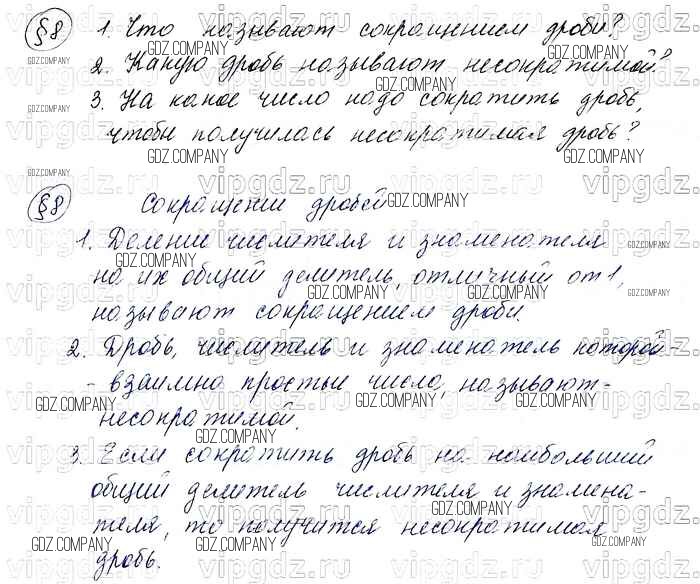 §8 1. Что называют сокращением дроби?
2. Какую дробь называют несократимой?
3. На какое число надо сократить дробь,
чтобы получилась несократимая дробь?
§8 Сокращение дробей
1. Деление числителя и знаменателя
на их общий делитель, отличный от 1,
называют сокращением дроби.
2. Дробь, числитель и знаменатель которой -
- взаимно простые числа, называют -
несократимой.
3. Если сократить дробь на наибольший
общий делитель числителя и знамена-
теля, то получится несократимая
дробь.